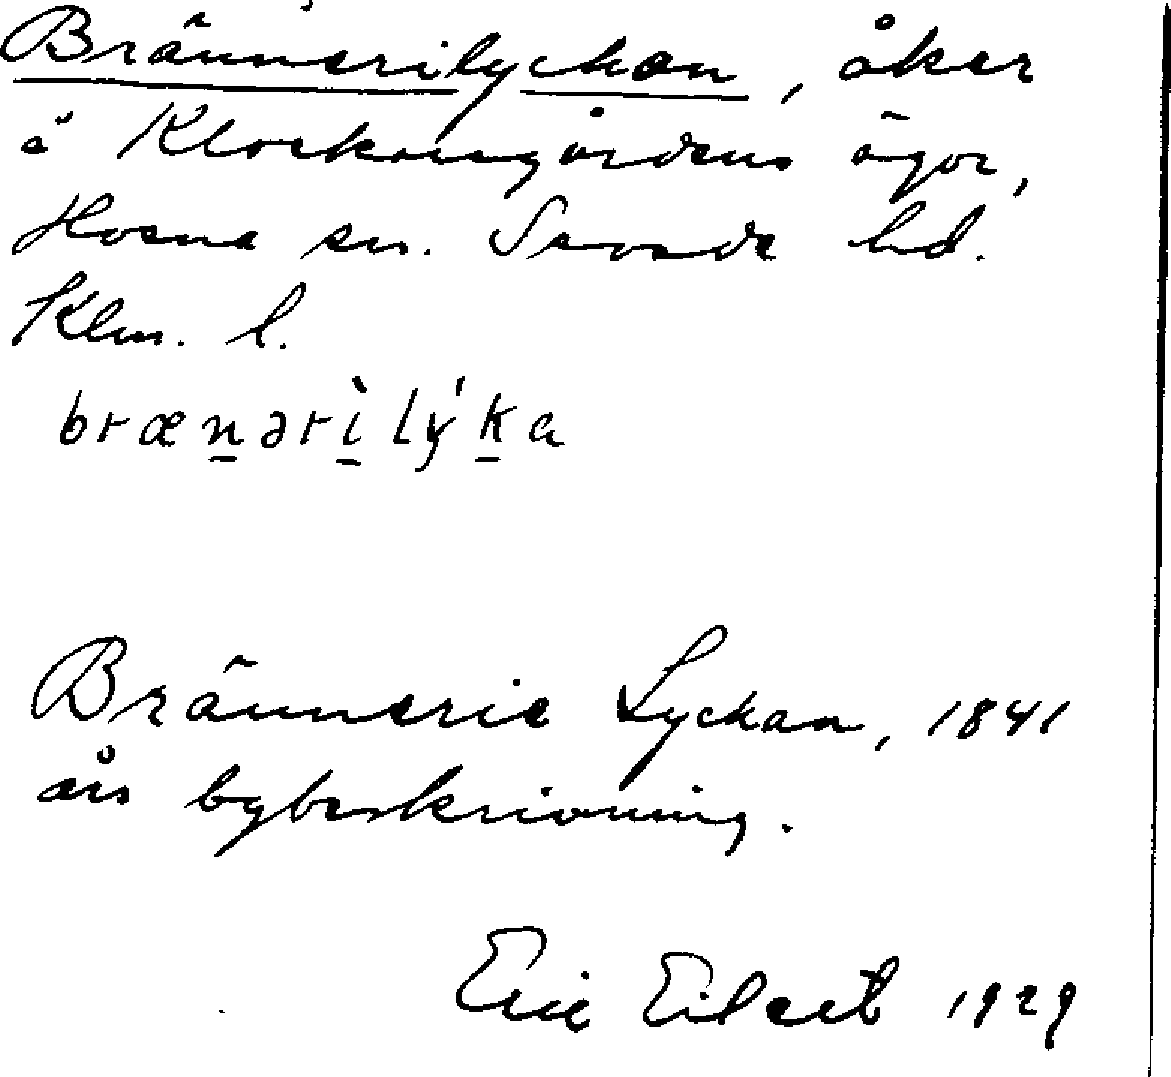 Brännerilyckan, åker
å Klockaregårdens ägor,
Hosna sn. Sevede hd.
Klm. l.
brænərìlýka
Brännerie Lyckan, 1841
års bybeskrivning.
Eric Eilert 1929